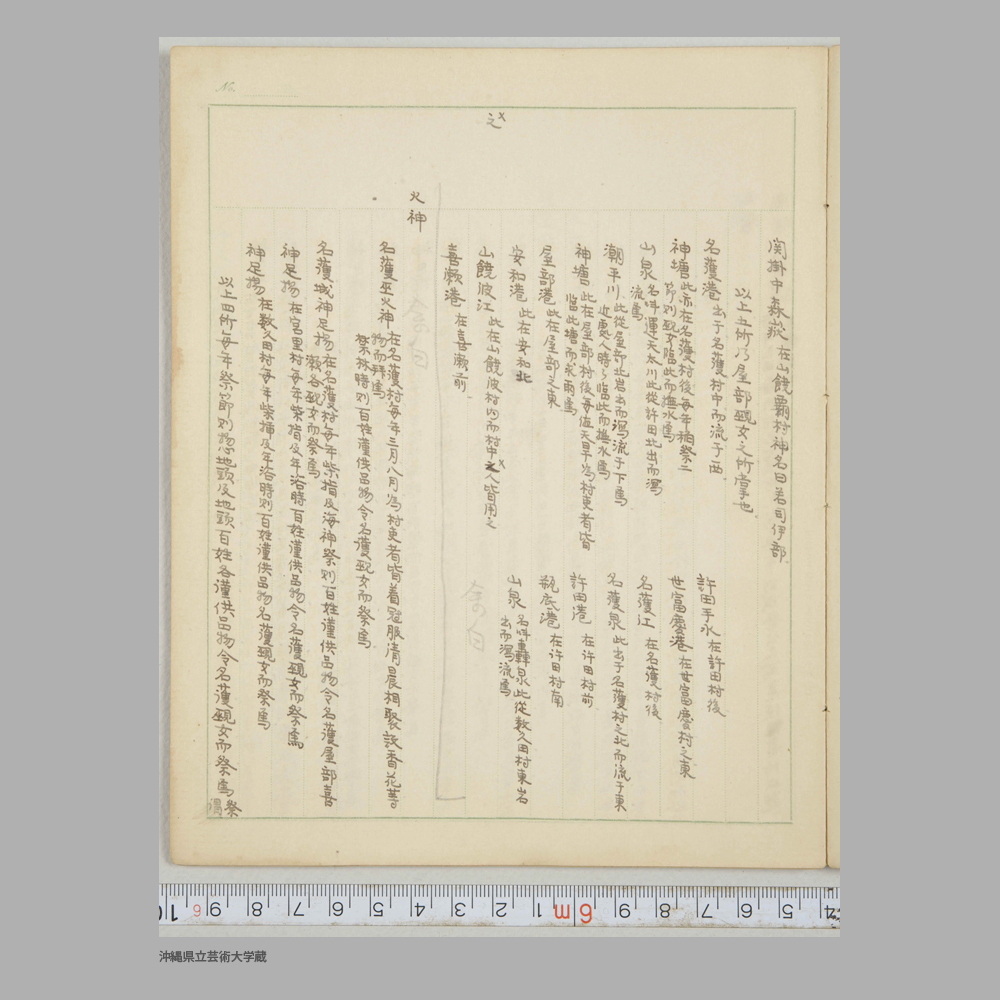 No.
之
関掛中森嶽 在山饒覇村神名曰君司伊部
以上五所乃屋部覡女之所掌也
名護港 出于名護村中而流于西
許田手水 在許田村後
神塘 此亦在名護村後每年稲祭二
節則覡女臨此而撫水焉
世富慶港 在世富慶村之東
山泉 名叫運天太川此從許田北出而瀉
流焉
名護江 在名護村後
潮平川 此從屋部北岩出而瀉流于下焉
近處人時々臨此而撫水焉
名護泉 此出于名護村之北而流于東
神塘 此在屋部村後每值天旱為村吏者皆
臨此塘而求雨焉
許田港 在許田村前
屋部港 此在屋部之東
瓶底港 在许田村南
安和港 此在安和北
山泉 名叫轟泉此從数久田村東岩
出而瀉流焉
山饒波江 此在山饒波村内而村中之人皆用之
喜瀬港 在喜瀬之前
火神
名護巫火神 在名護村每年三月八月為村吏者皆着冠服清晨相聚設香花等
物而拜焉
祭林時則百姓謹供品物令名護覡女而祭焉
名護城神足揚 在名護村每年柴指及海神祭則百姓謹供品物令名護屋部喜
瀬各覡女而祭焉
神足揚 在宮里村每年柴指及年浴時百姓謹供品物令名護覡女而祭焉
神足揚 在数久田村每年柴揷及年浴時則百姓謹供品物名護覡女而祭焉
以上四所每年祭節則惣地頭及地頭百姓各謹供品物令名護覡女而祭焉
祭
沖縄県立芸術大学蔵